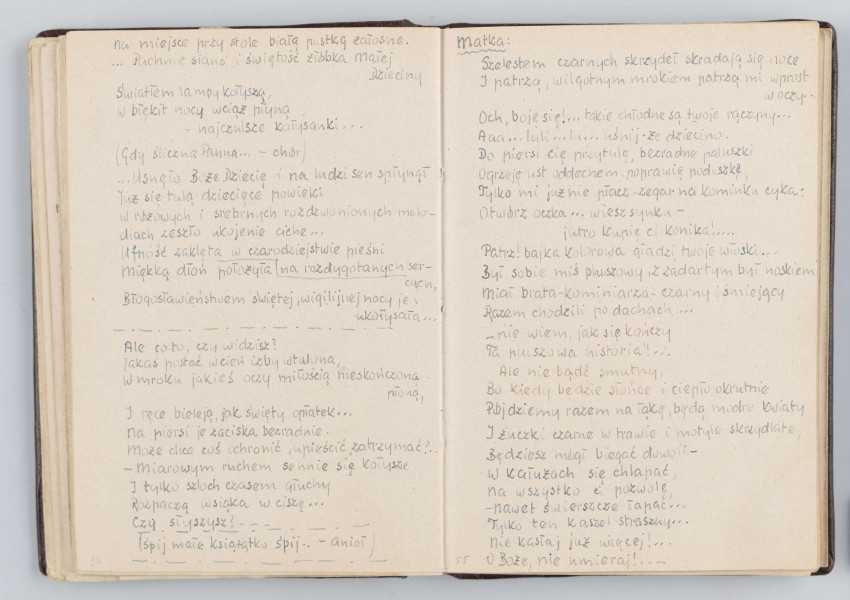 na miejsce przy stole białą pustką żałosne.
... Pachnie siano i świętość żłóbka Małej
Dzieciny
Światłem lampy kołyszą,
w błękit nocy wciąż płyną
- najczulsze kołysanki...
(Gdy śliczna Panna... - chór)
...Usnęło Boże Dziecię i na ludzi sen spłynął
Już się tulą dziecięce powieki
W różowych i srebrnych rozdzwonionych melo-
diach zeszło ukojenie ciche...
Ufność zaklęta w czarodziejstwie pieśni
Miękką dłoń położyła na rozdygotanych ser-
cach,
Błogosławieństwem świętej, wigilijnej nocy je
ukołysała...
Ale co to, czy widzisz?
Jakaś postać w cień izby wtulona,
W mroku jakieś oczy miłością nieskończoną
płoną,
I ręce bieleją, jak święty opłatek...
Na piersi je zaciska bezradnie.
Może chce coś ochronić, upieścić, zatrzymać?..
- Miarowym ruchem sennie się kołysze
I tylko szloch czasem głuchy
Rozpaczą wsiąka w ciszę...
Czy słyszysz?...
(śpij małe książątko śpij... - anioł)
54
Matka:
Szelestem czarnych skrzydeł skradają się noce
I patrzą, wilgotnym mrokiem patrzą mi wprost
w oczy...
Och, boję się!... takie chłodne są twoje rączyny...
Aaa... luli... lu... uśnij-że dziecino.
Do piersi cię przytulę, bezradne paluszki
Ogrzeję ust oddechem, poprawię poduszkę,
Tylko mi już nie płacz - zegar na kominku cyka:
Otwórz oczka... wiesz synku -
jutro kupię ci konika!....
Patrz! bajka kolorowa gładzi twoje włoski...
Był sobie miś pluszowy, z zadartym był noskiem
Miał brata-kominiarza - czarny i śmiejący
Razem chodzili po dachach....
...nie wiem, jak się kończy
Ta pluszowa historia!...
Ale nie bądź smutny,
Bo kiedy będzie słońce i ciepło okrutnie
Pójdziemy razem na łąkę, będą modre kwiaty
I żuczki czarne w trawie i motyle skrzydlate,
Będziesz mógł biegać dowoli -
W kałużach się chlapać,
Na wszystko ci pozwolę,
- nawet świerszcze łapać...
Tylko ten kaszel straszny...
Nie kaszlaj już więcej!...
O Boże, nie umieraj!....
55